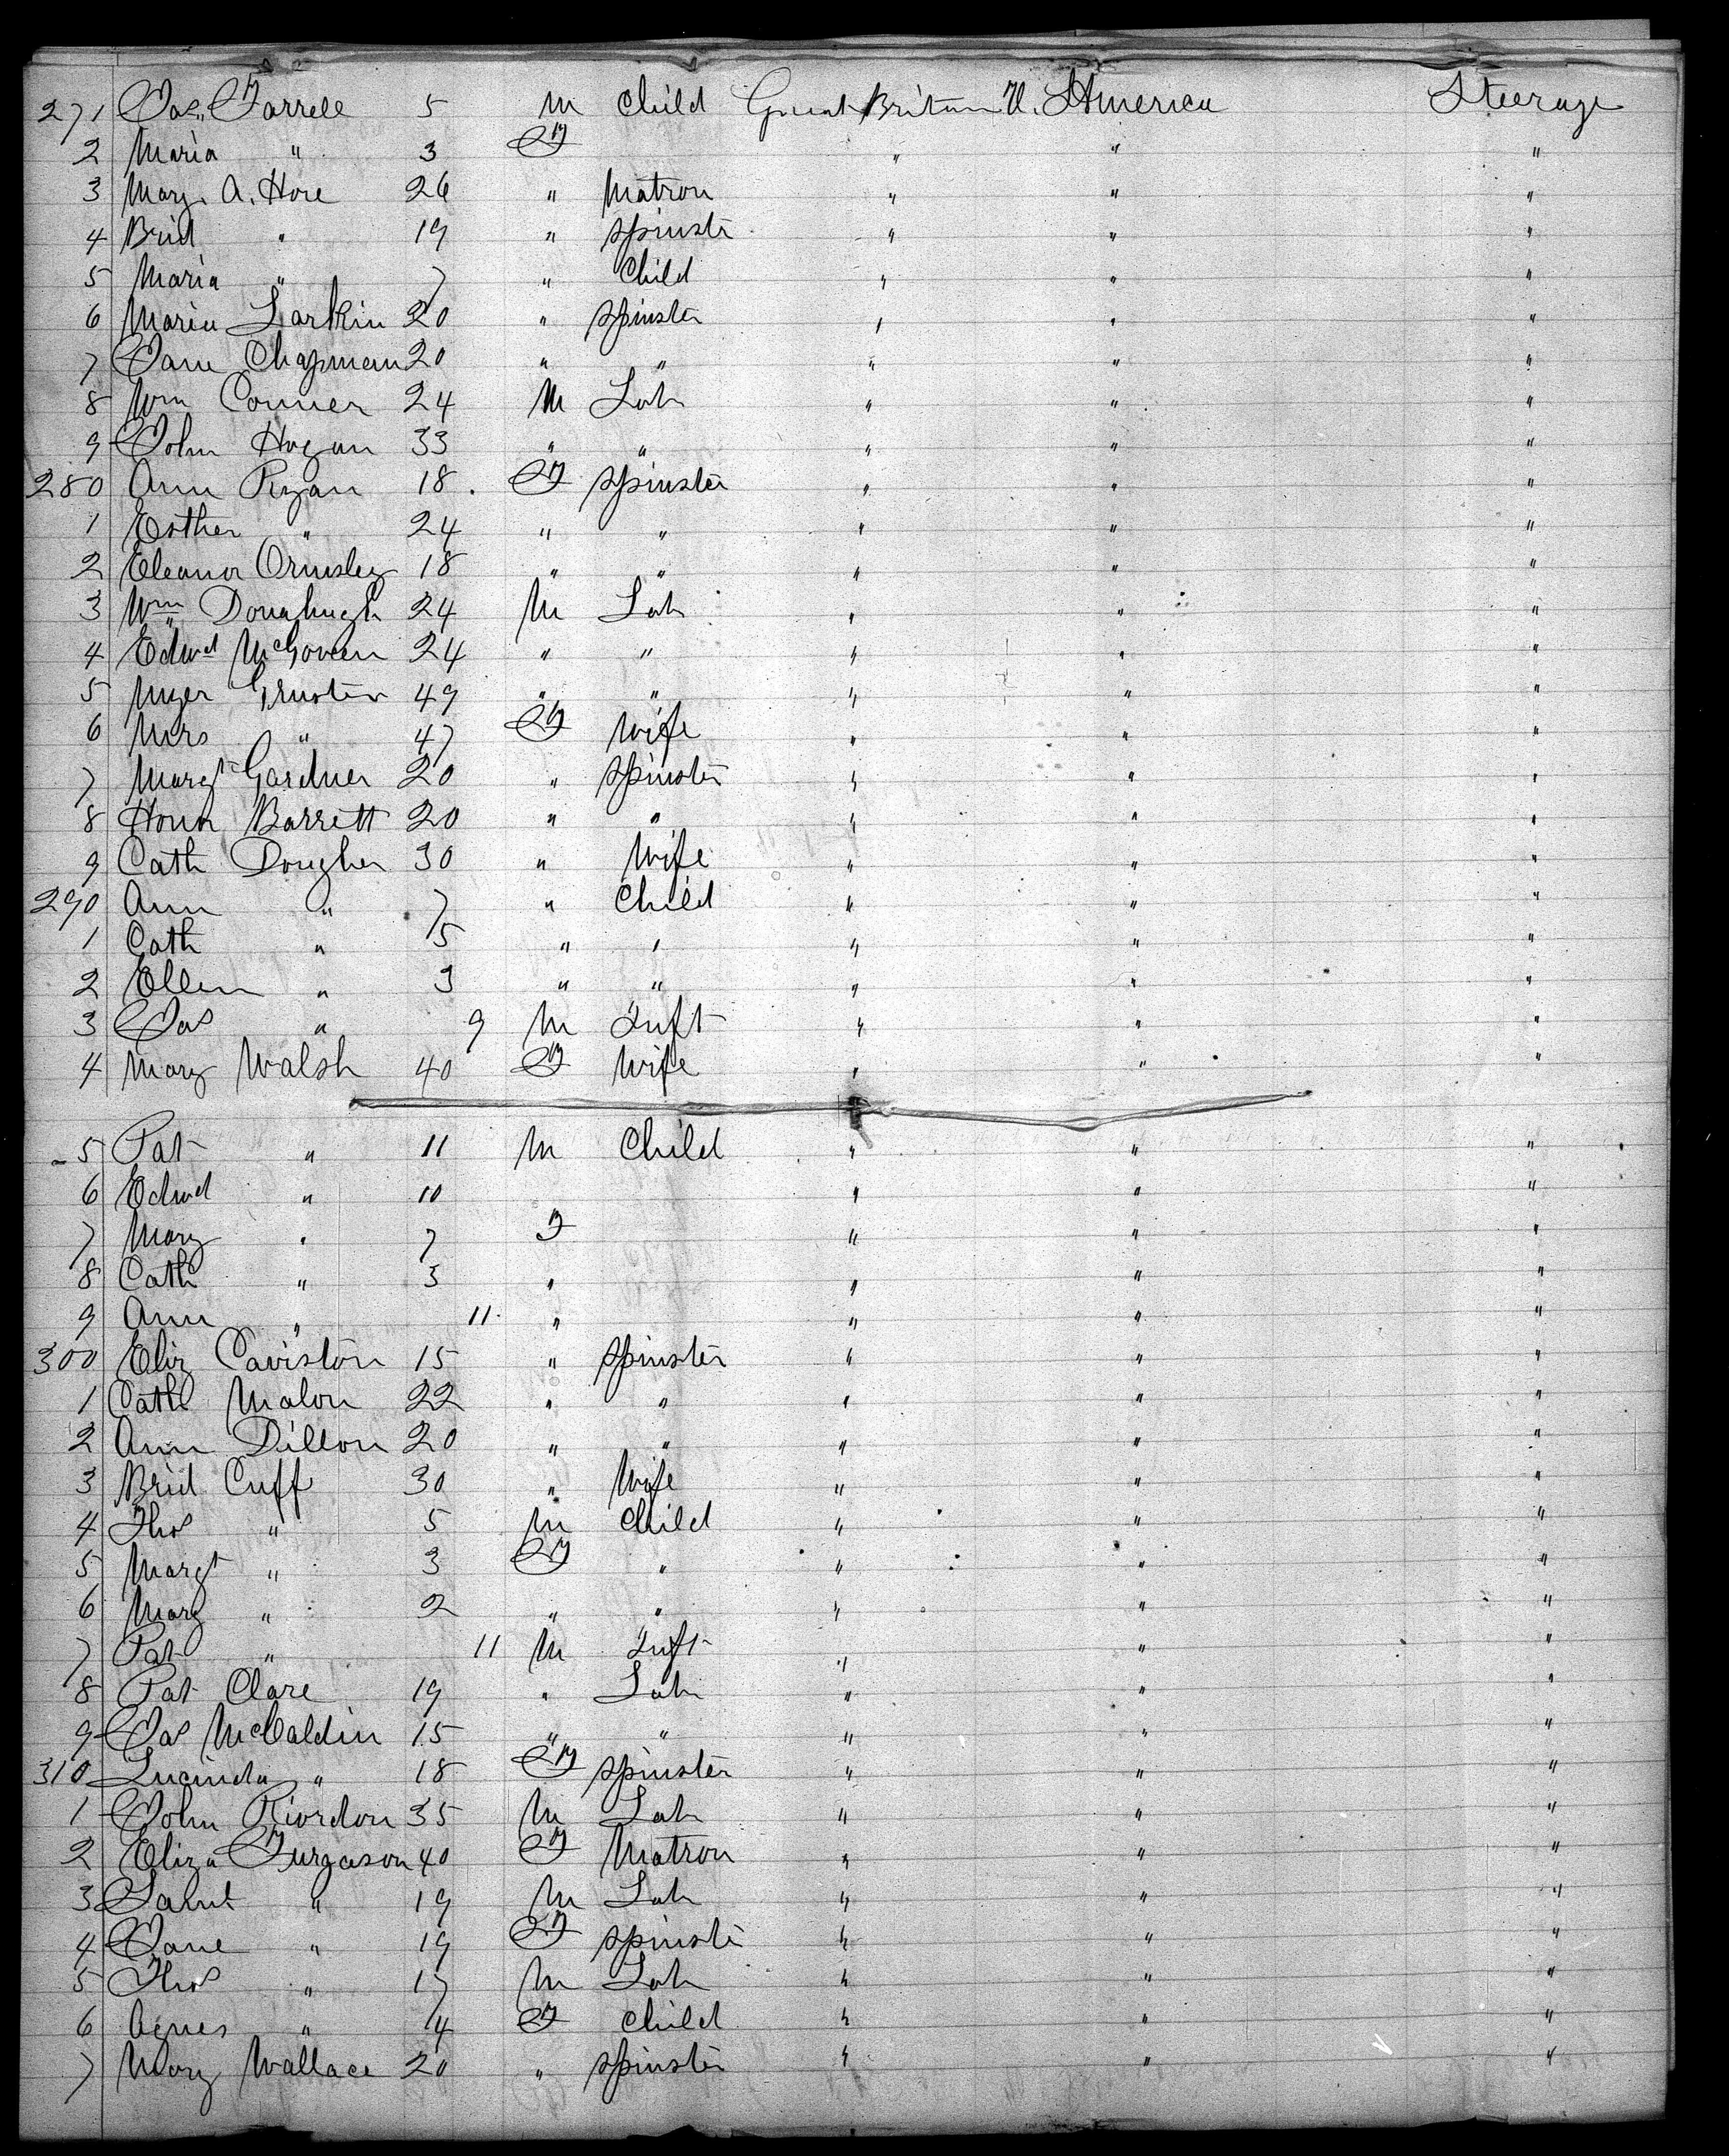 271 Jas. Farrell 5 M Child Great Britain U. America Steerage
2 Maria " 3 F " " "
3 Mary A. Hore 26 " Matron " " "
4 Brid " 19 " Spinstr " " "
5 Maria " 7 " Child " " "
6 Maria Larkin 20 " Spinster " " "
7 Jane Chapman 20 " " " " "
8 Wm Conner 24 M Lab " " "
9 John Hogan 33 " " " " "
280 Ann Ryan 18 F Spinster " " "
1 Esther " 24 " " " " "
2 Eleanor Ormsley 18 " " " " "
3 Wm Donahugh 24 M Lab " " "
4 Edwd McGowen 24 " " " " "
5 Myer 49 " " " " "
6 Mrs " 47 F Wife " " "
7 Margt Gardner 20 " Spinster " " "
8 Honor Barrett 20 " " " " "
9 Cath Dougher 30 " Wife " " "
290 Ann " 7 " Child " " "
1 Cath " 5 " " " " "
2 Ellen " 3 " " " " "
3 Jas " 9 M Inft " " "
4 Mary Walsh 40 F Wife " " "
5 Pat " 11 M Child " " "
6 Edwd " 10 " " "
7 Mary " 7 F " " "
8 Cath " 3 " " " "
9 Ann " 11 " " " "
300 Eliz Caviston 15 " Spinster " " "
1 Cath Malon 22 " " " " "
2 Ann Dillon 20 " " " " "
3 Brid Cuff 30 " Wife " " "
4 Thos " 5 M Child " " "
5 Margt " 3 F " " " "
6 Mary " 2 " " " " "
7 Pat " 11 M Inft " " "
8 Pat Clare 19 " Lab " " "
9 Jas McCaldin 15 " " " " "
310 Lucinda " 18 F Spinster " " "
1 John Riordon 35 M Lab " " "
2 Eliza Furgason 40 F Matron " " "
3 Saml " 19 M Lab " " "
4 Jane " 19 F Spinste " " "
5 Thos " 17 M Lab " " "
6 Agnes " 4 F Child " " "
7 Mary Wallace 20 " Spinster " " "